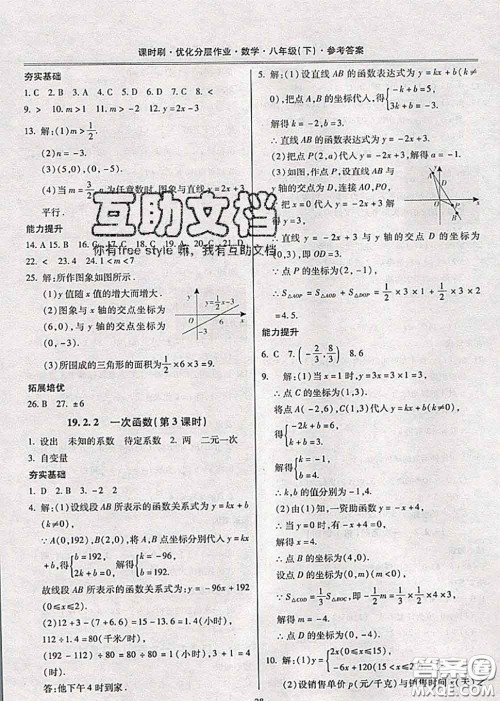 课时刷·优化分层作业·数学·八年级(下)·参考答案
夯实基础
1. C 2. B 3. C 4. D 5. C 6. A 7.
9. > 10. m>1 11. m>-2
13. 解:(1)m>1/2.
(2)n=-3.
(3)(5,0),(0,-5).
(4)当m=3/2, n为任意数时,图象与直线y=2x+3
平行.
能力提升
14. A 15. B 16. C
22. >-1 23. 24. 1<m<7
25. 解:所作图象如图所示.
(1)y值随x值的增大而增大.
(2)图象与x轴的交点坐标为
(6,0),与y轴的交点坐标为
(0,-3).
y=1/2x-3
(3)所围成的三角形的面积为1/2×6×3=9.
拓展培优
26. B 27. ±6
19.2.2 一次函数(第3课时)
1. 设出 未知的系数 待定系数 2. 两 二元一次
3. 自变量
夯实基础
1. D 2. B 3. -2 2
4. 解:(1)设线段AB所表示的函数关系式为y=kx+b
(k≠0),
∵A(0,192),B(2,0),将A,B点坐标分别代入
y=kx+b,得{b=192, 2k+b=0, 解得{k=-96, b=192.
故线段AB所表示的函数关系式为y=-96x+192
(0≤x≤2).
(2)12+3-(7+6.6)=15-13.6=1.4(小时),
112÷1.4=80(千米/时),
(192-112)÷80=80÷80=1(小时),
3+1=4(时).
答:他下午4时到家.
5. 解:(1)设直线AB的函数表达式为y=kx+b(k≠
0),把点A,B的坐标代入,得{k+b=1, -k+b=5,
解得k=-2,b=3.
∴直线AB的函数表达式为y=-2x+3.
(2)把点P(2,a)代入y=-2x+3,得a=-1.
(3)如图,作点P,设直线AB与
y轴的交点为D,连接AO,PO,
把x=0代入y=-2x+3,
得y=3.
∴直线y=-2x+3与y轴的
交点坐标为D(0,3).
∴S△AOP=S△AOD+S△POD=1/2×3×1+1/2×3×
2=4.5.
能力提升
6. C 7. (-2/3, 8/3) 8. 6
9. 解:(1)当x=1时,y=3x=3×1=3,
∴点C的坐标为(1,3).
将点A(-2,6),C(1,3)代入y=kx+b,
得{-2k+b=6, k+b=3,
解得{k=-1, b=4.
∴k,b的值分别为-1,4.
(2)当y=0时,有-x+4=0,
解得x=4,
∴点B的坐标为(4,0).
设点D的坐标为(0,m)(m<0).
∵S△COD=1/3S△BOC,即-1/2m=1/3×1/2×4×3,
解得m=-4.
∴点D的坐标为(0,-4).
(2)设销售单价p(元/千克)与销售时间x(天)之
互助文档
你有free style 嘛,我有互助文档
答案圈
MXQE.COM